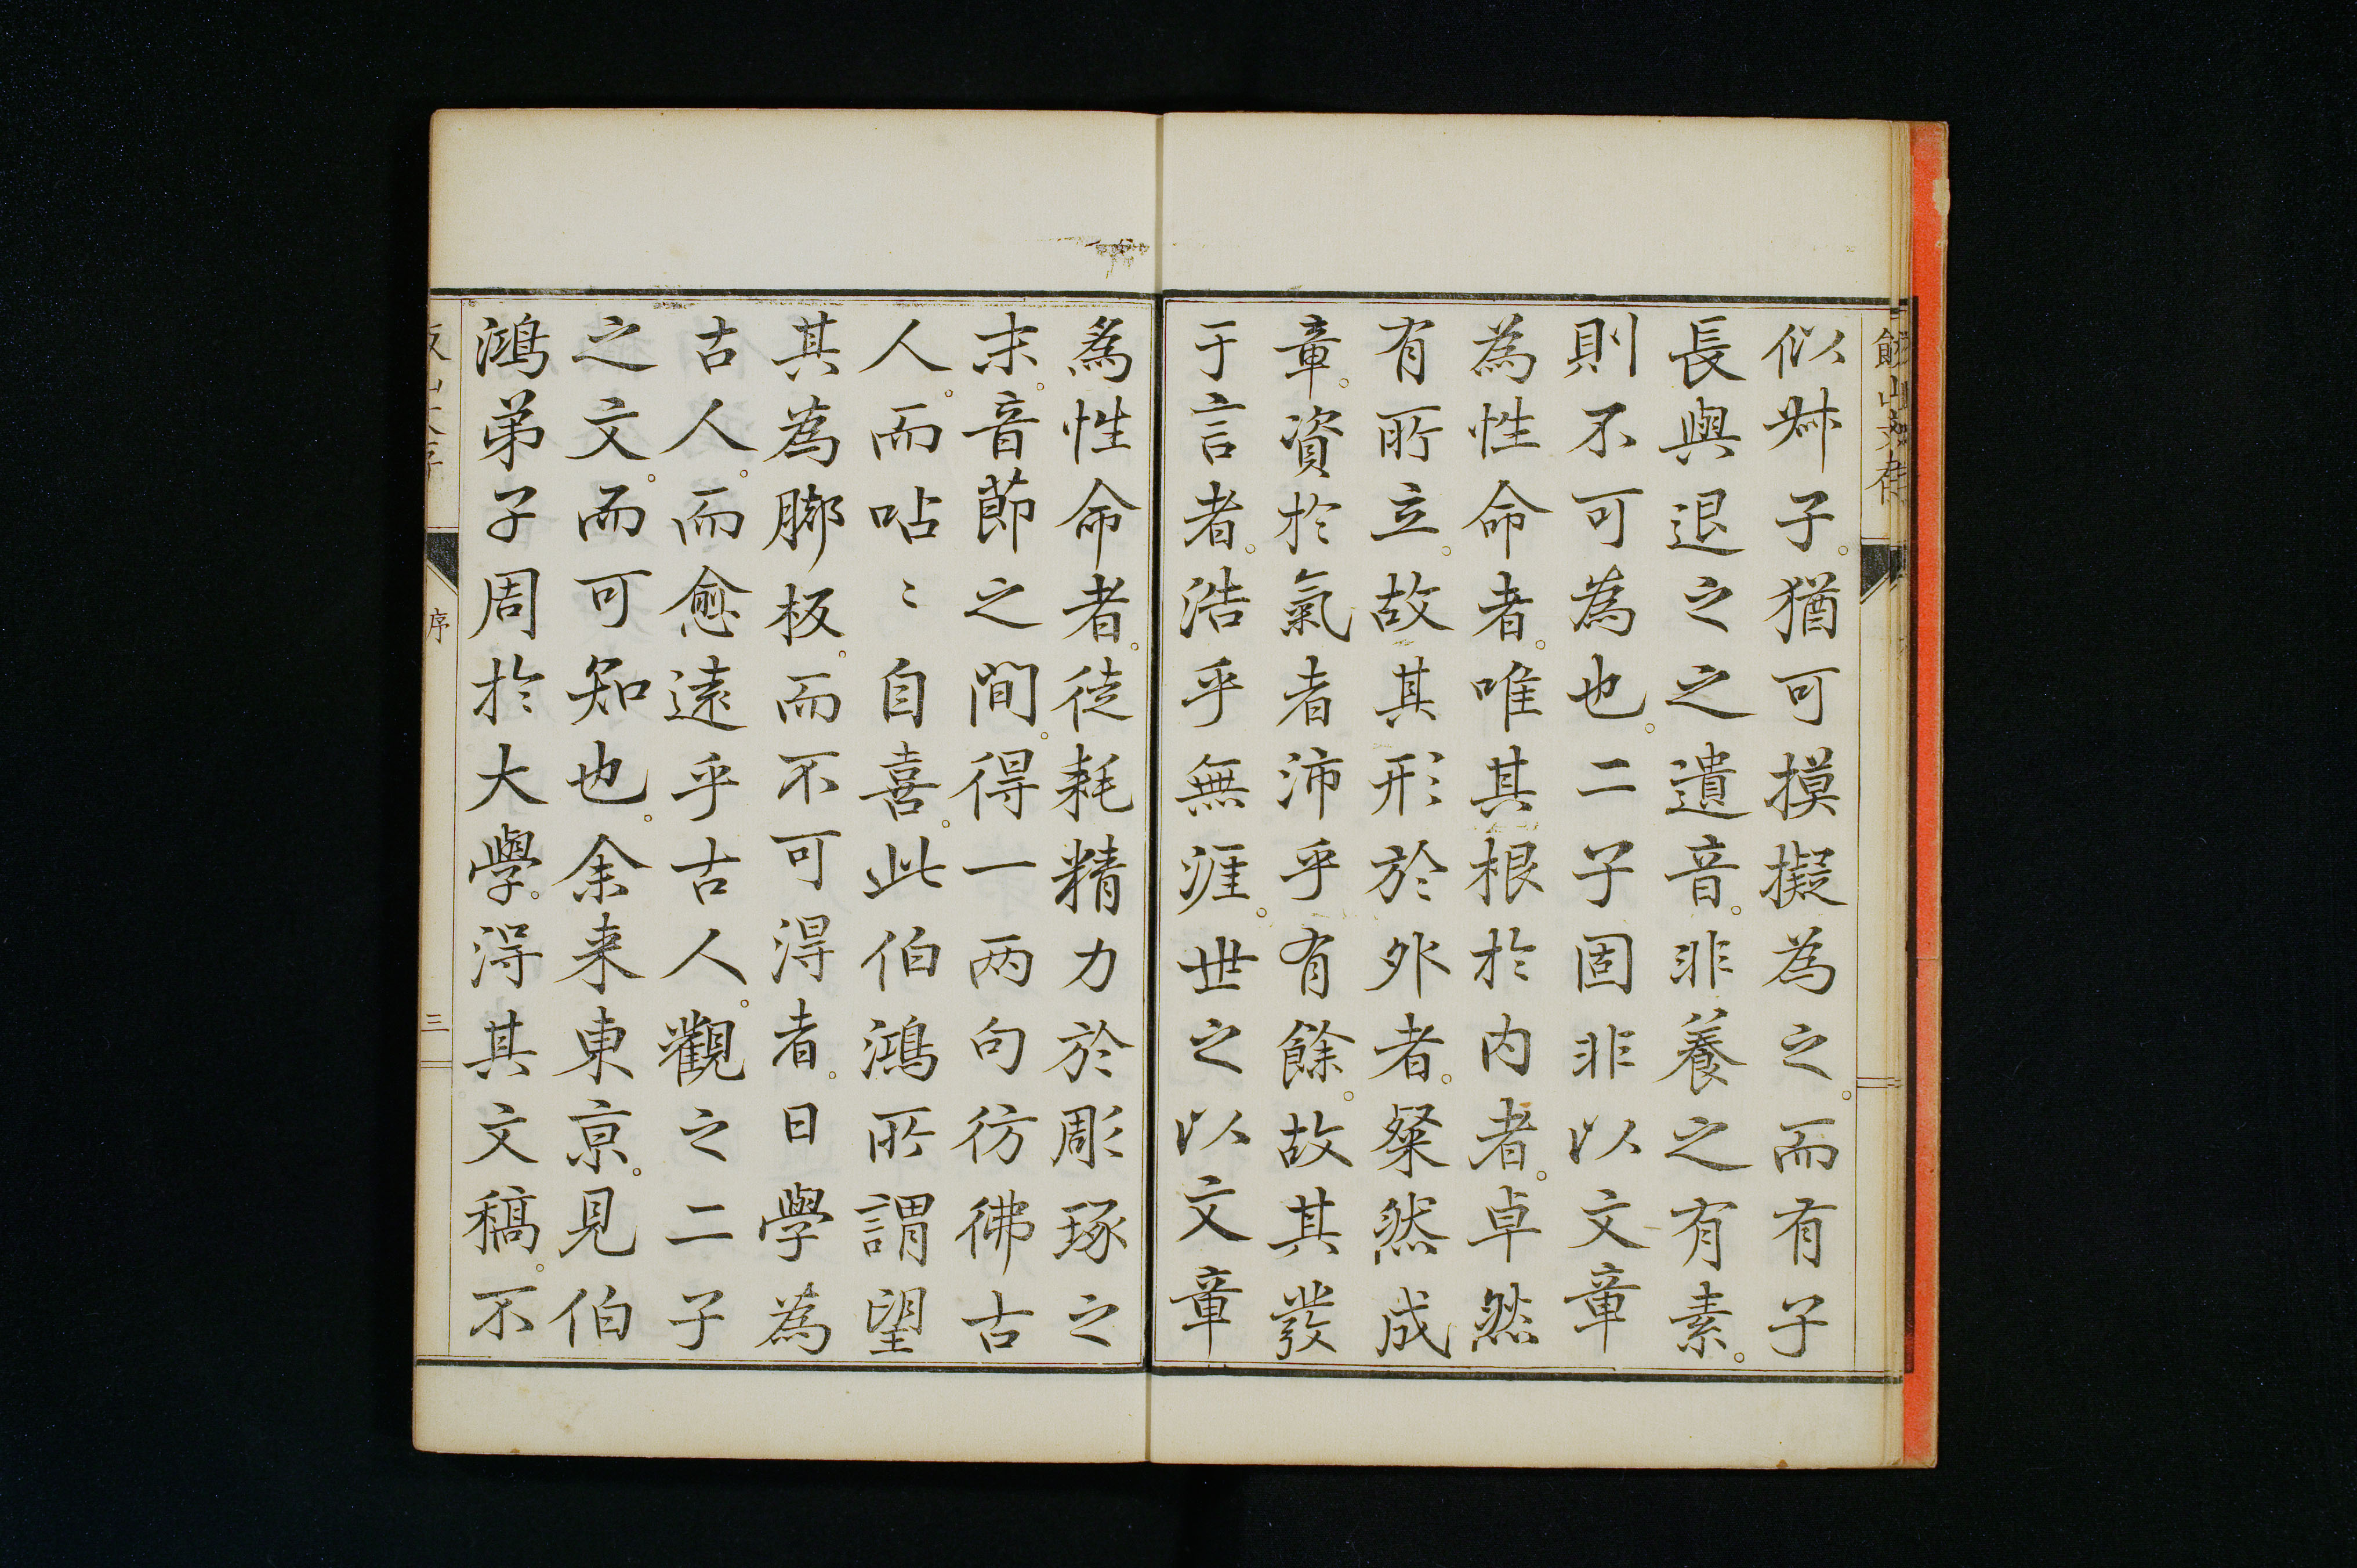 似叔子。猶可摸擬為之。而有子
長與退之之遺音。非養之有素。
則不可為也。二子固非以文章
為性命者。唯其根於内者。卓然
有所立。故其形於外者。粲然成
章。資於氣者沛乎有餘。故其發
于言者。浩乎無涯。世之以文章
為性命者。徒耗精力於彫琢之
末。音節之間。得一两句彷彿古
人。而呫〻自喜。此伯鴻所謂望
其為腳板。而不可得者。日學為
古人。而愈遠乎古人。觀之二子
之文。而可知也。余来東京。見伯
鴻弟子周於大學。得其文稿。不
序
三